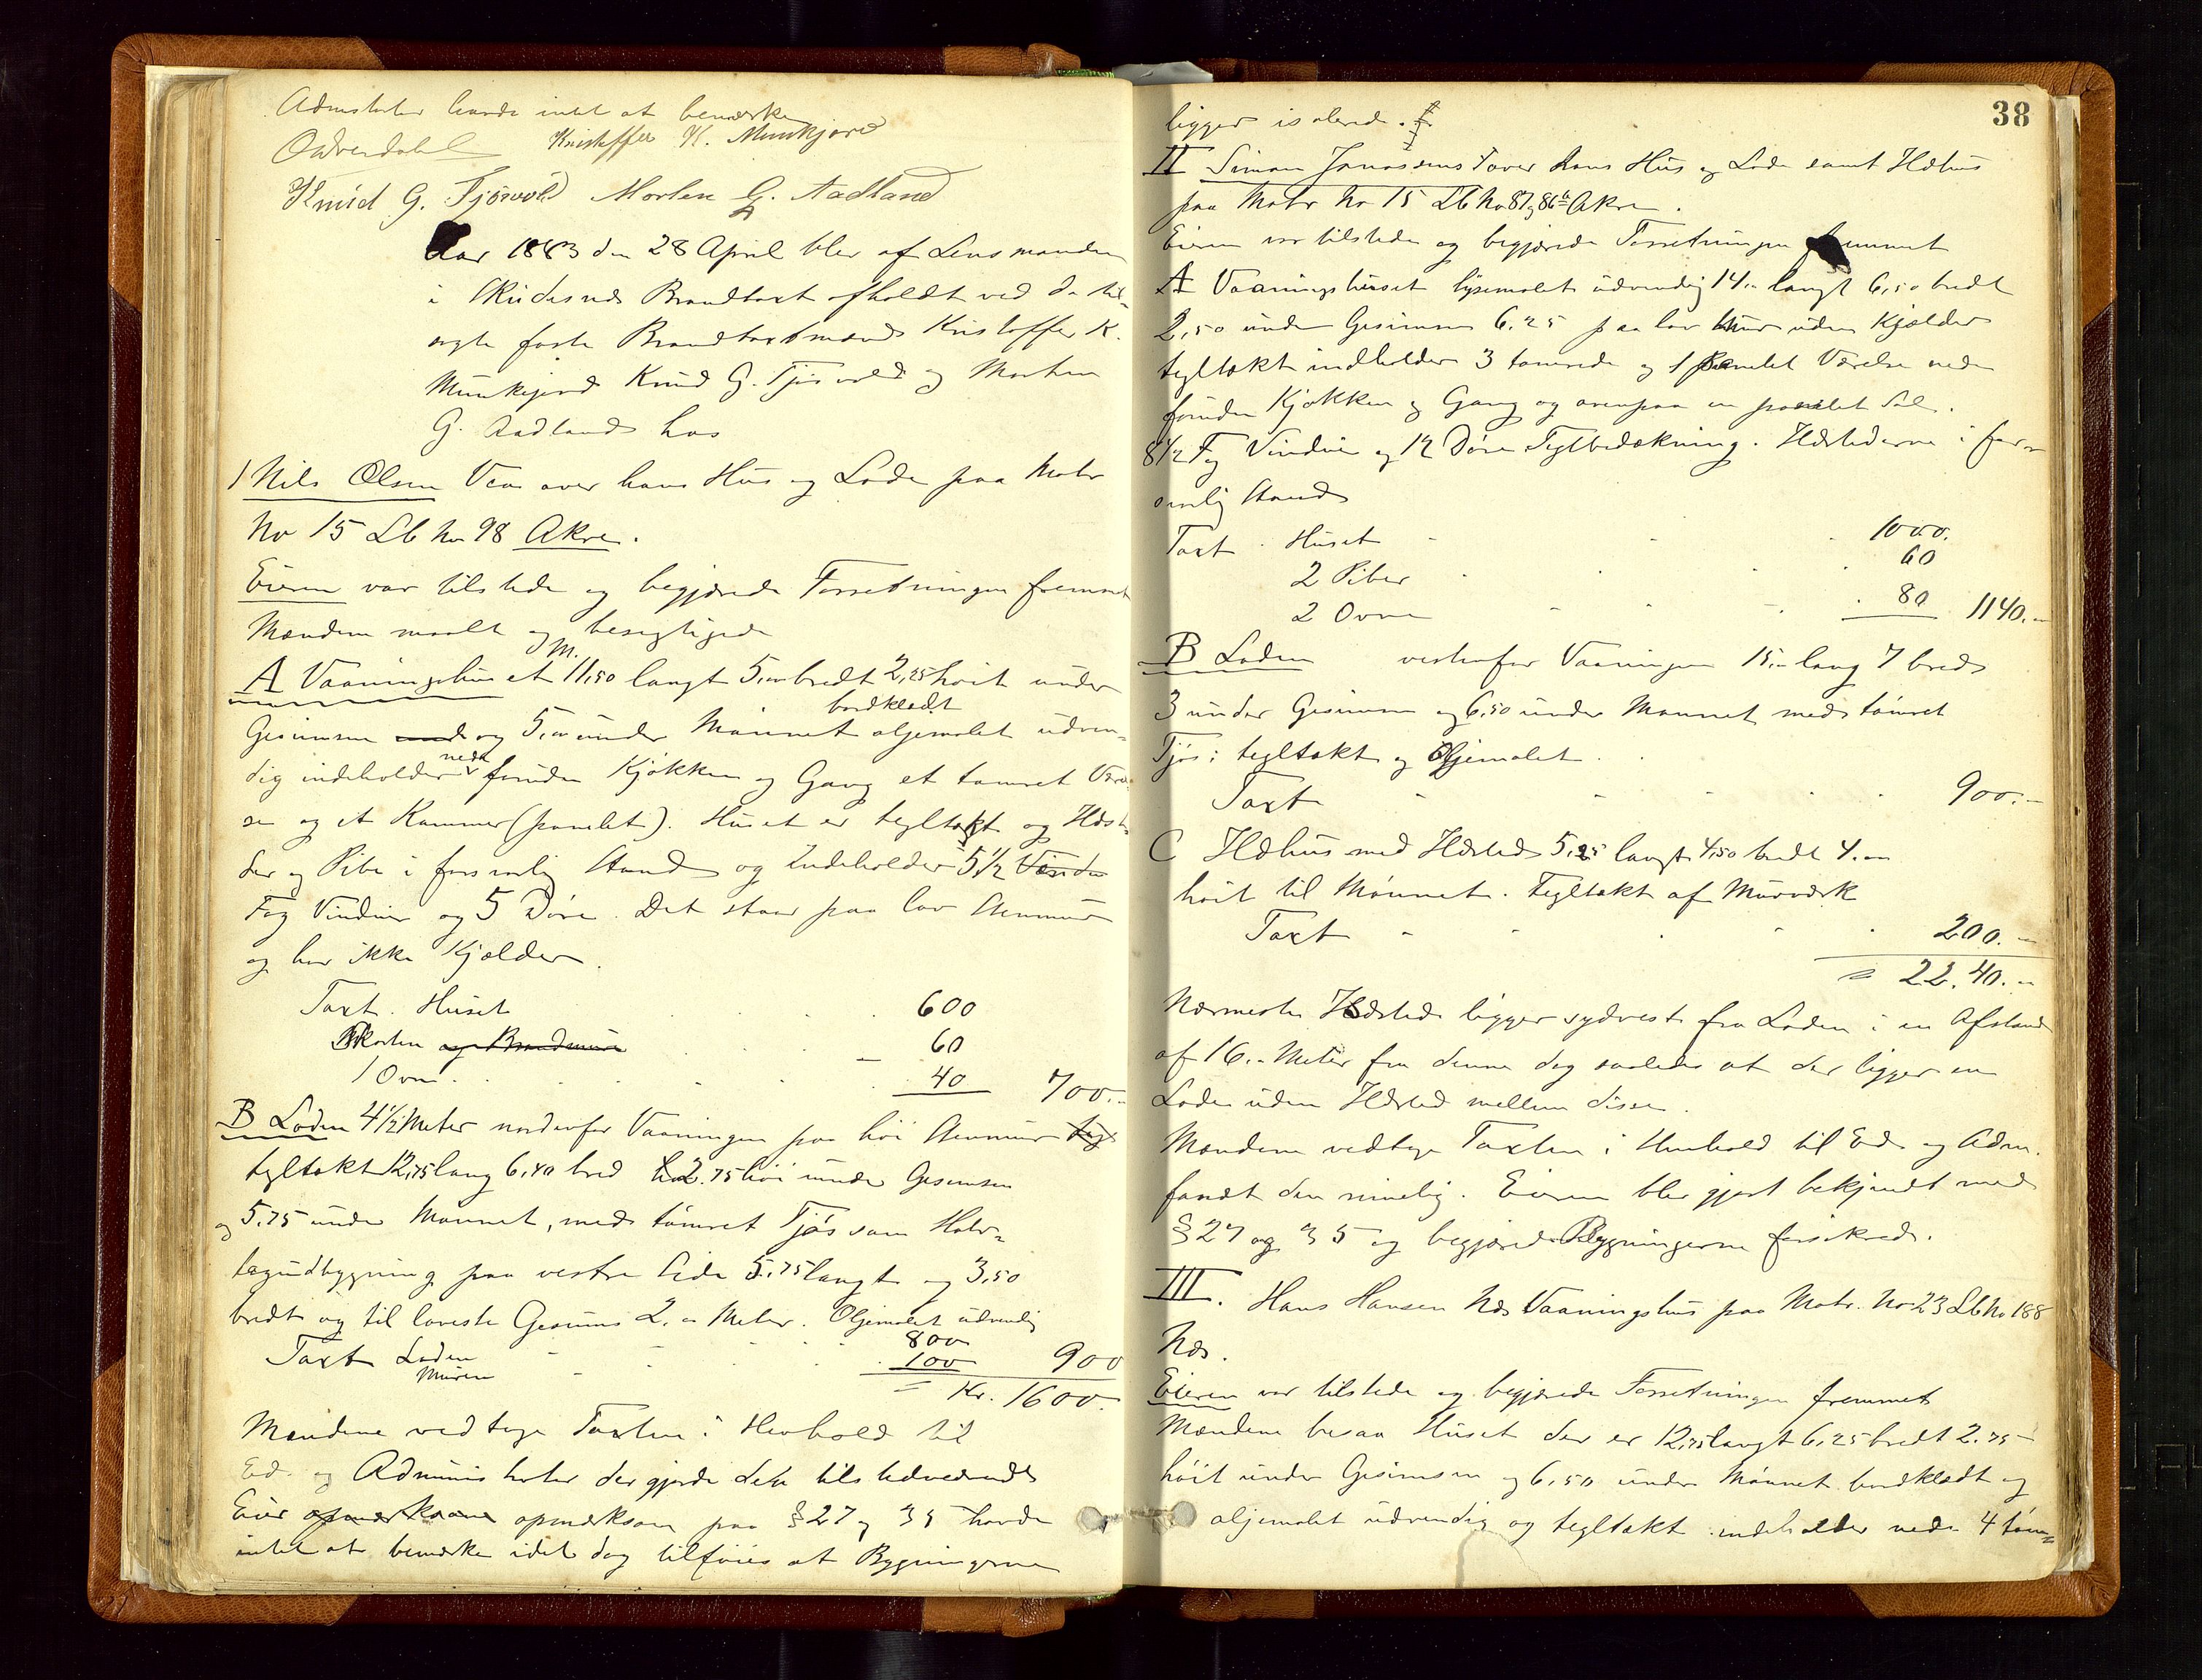 Adminstrator havde intet at bemærke
Odverdahl Kristoffer K. Munkejord
Knud G. Tjøsvold Morten G. Aadland
Aar 1883 den 28 April blev af Lensmanden
i Skudesnes Brandtaxt afholdt ved de til-
sagte faste Brandtaxtmænd Kristoffer K.
Munkejord Knud G. Tjøsvold og Morten
G. Aadland hos
1 Nils Olsen Vea over hans Hus og Lade paa Matr
No 15 Lb No 98 Akre.
Eieren var tilstede og begjærede Forretningen fremmet
Mændene maalte og besigtigede
A Vaaningshuset 11,50 m. langt 5,00 bredt 2,25 høit under
Gesimsen og 5,00 under Mønnet bordklædt oljemalet udven-
dig indeholder nede foruden Kjøkken og Gang et tømret Værel
se og et Kammer (panelet). Huset er tegltækt og Ildste
der og Pibe i forsvarlig Stand og Indeholder 5 1/2
Fag Vinduer og 5 Døre. Det staar paa lav Stenmur
og har ikke Kjælder.
Taxt. Huset 600
Skorsten og Brandmur 60
1 Ovn 40 700.-
B Laden 4 1/2 Meter nordenfor Vaaningen paa høi Stenmur
tegltækt 12,75 lang 6,40 bred 2.75 høi under Gesimsen
og 5.75 under Mønnet, med tømret Fjøs som Halv-
tagudbygning paa vestre Side 5.75 langt og 3,50
bredt og til laveste Gesims 2.- Meter. Oljemalet udvendig
Taxt Laden 800
Muren 100 900
= Kr. 1600.
Mændene vedtoge Taxten i Henhold til
Ed. og Administrator der gjorde dette tilstedeværende
Eier opmærksom paa § 27 og 35 havde
intet at bemærke idet dog tilføies at Bygningerne
38
ligger isolerede.
II Simon Janassens Tover Hans Hus og Lade samt Ildhus
paa Matr No 15 Lb No 87 og 86 Akre.
Eieren var tilstede og begjærede Forretningen fremmet
A Vaaningshuset lysemalet udvendig 14.- langt 6,50 bredt
2,50 under Gesimsen 6.25 paa lav Mur uden Kjælder
tegltækt indholder 3 tømrede og 1 panelet Værelse nede
foruden Kjøkken og Gang og ovenpaa en panelet Sal.
8 1/2 Fag Vinduer og 12 Døre Teglbedækning. Ildstederne i for-
svarlig Stand
Taxt. Huset 1000.
2 Piber 60
2 Ovne 80 1140.-
B Laden vestenfor Vaaningen 15.- lang 7 bred
3 under Gesimsen og 6,50 under Mønnet med tømret
Fjøs; tegltækt og Oljemalet.
Taxt 900.-
C Ildhus med Ildsted 5,25 langt 4,50 bredt 4.-
høit til Mønnet. Tegltækt af Murværk
Taxt 200.-
= 22.40.-
Nærmeste Ildsted ligger sydvest fra Laden i en Afstand
af 16.- Meter fra denne dog saaledes at der ligger en
Lade uden Ildsted mellem disse.
Mændene vedtoge Taxten i Henhold til Ed. og Adm.
fandt den rimelig. Eieren blev gjort bekjendt med
§ 27 og 35 og begjærede Bygningerne forsikrede.
III. Hans Hansen Næs Vaaningshus paa Matr. No 23 Lb No 188
Næs.
Eieren var tilstede og begjærede Forretningen fremmet
Mændene besaa Huset der er 12,75 langt 6,25 bredt 2.75-
høit under Gesimsen og 6,50 under Mønnet bordklædt og
oljemalet udvendig og tegltækt indeholder nede 4 tøm-